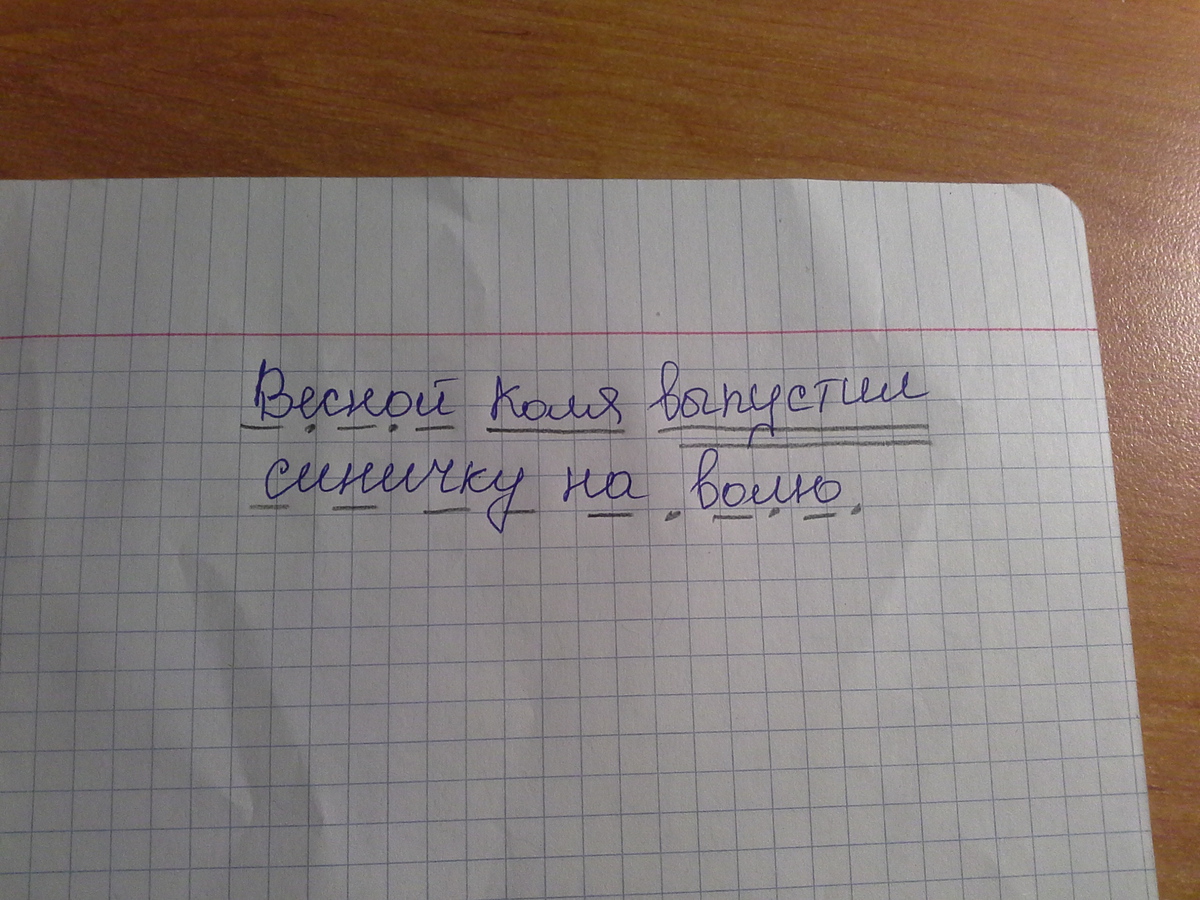 Весной Коля выпустил
синичку на волю.